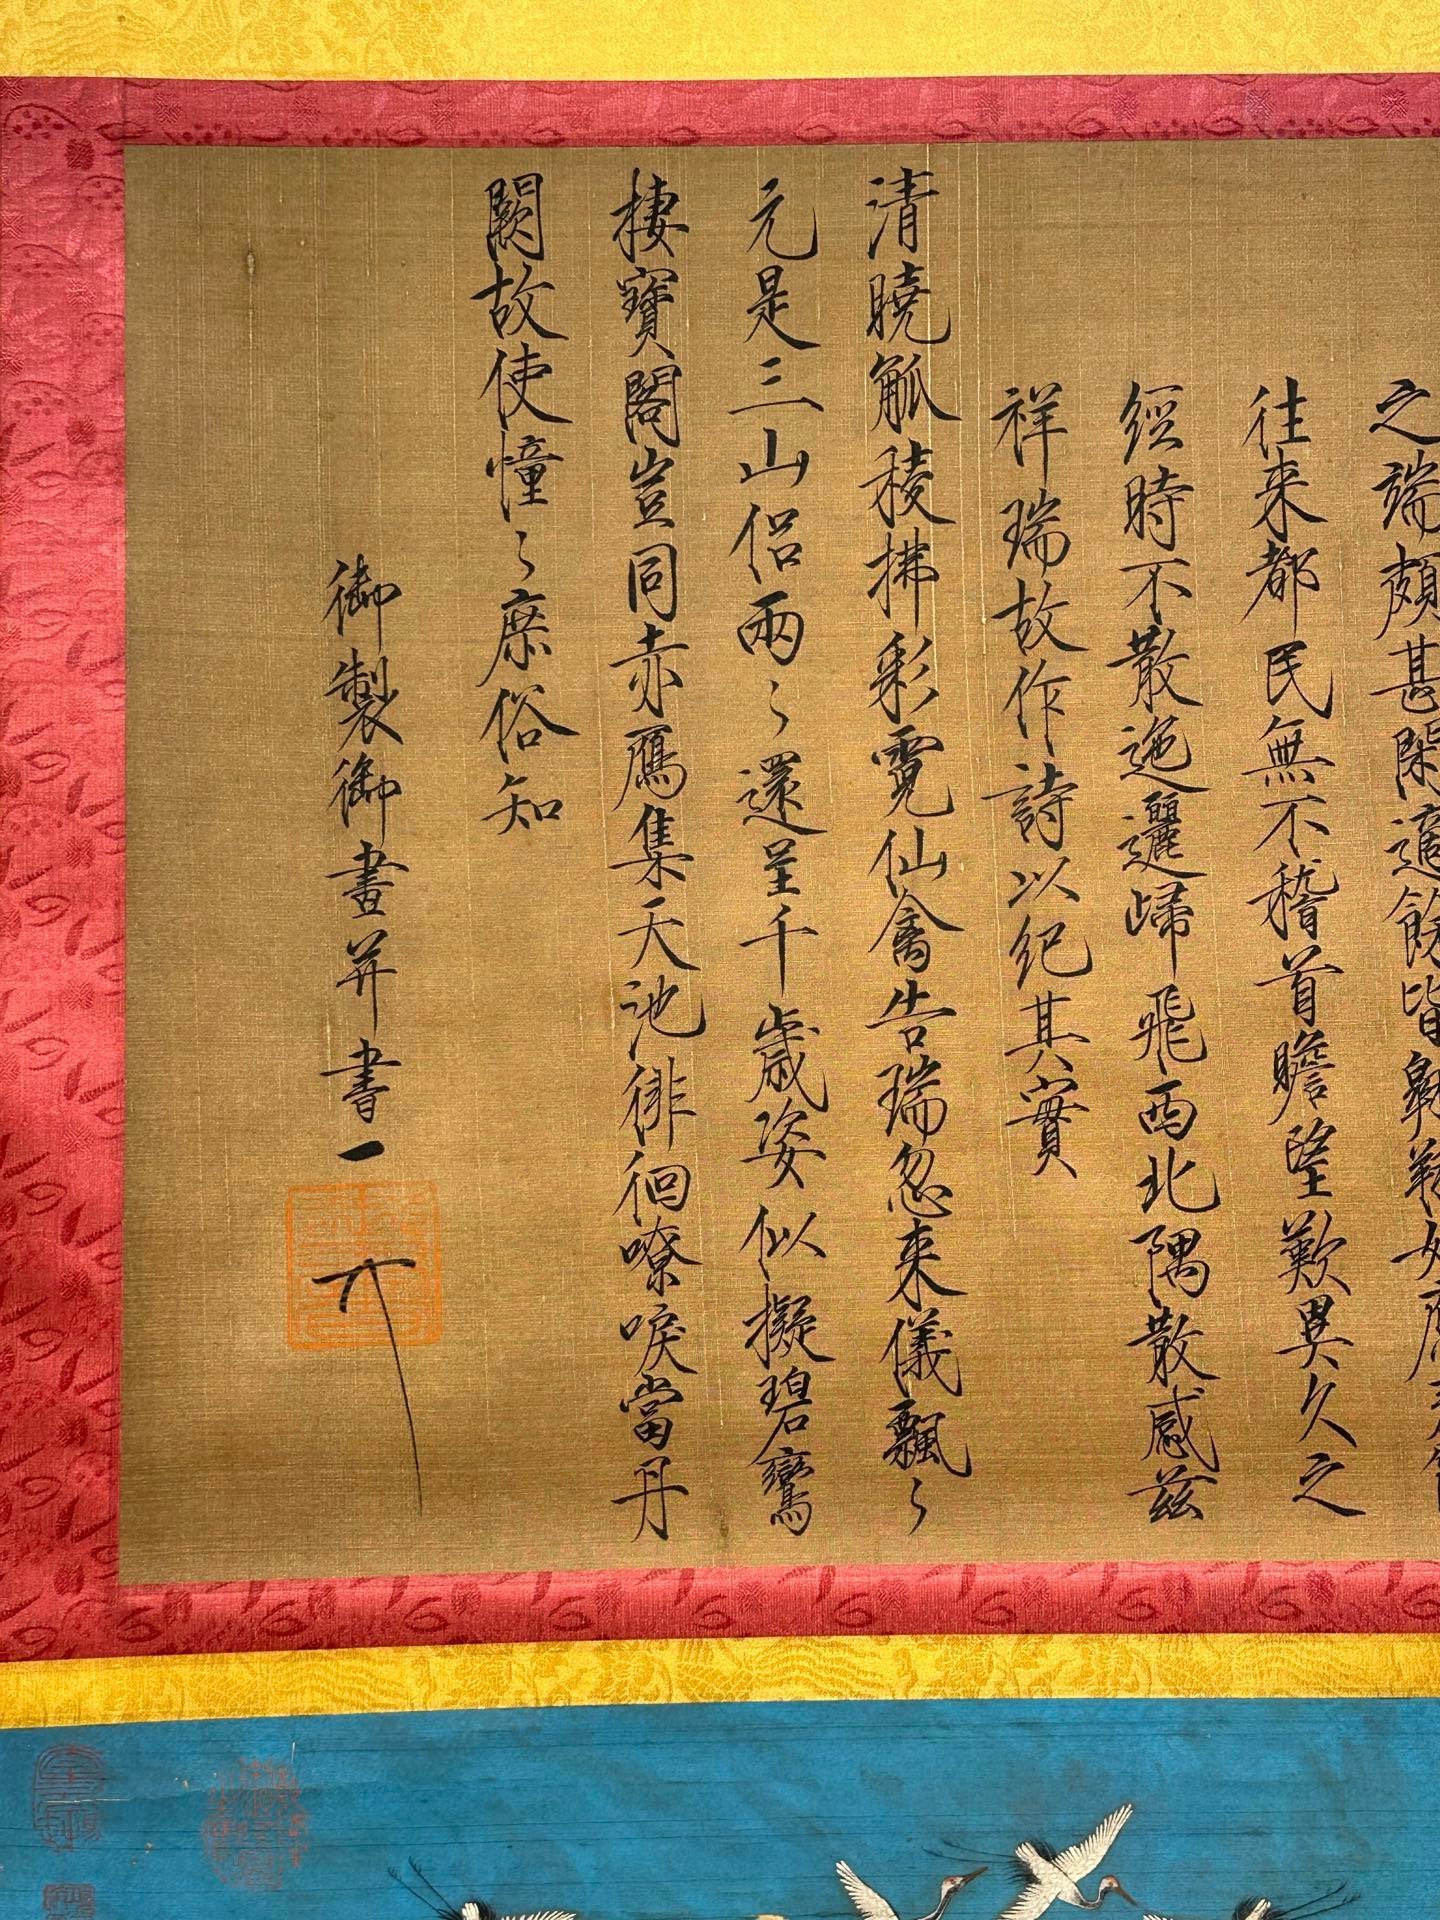 之端頗甚閑適餘皆翱翔如應奏節
往来都民無不稽首瞻望歎異久之
經時不散迤邐歸飛西北隅散感兹
祥瑞故作詩以紀其實
清曉觚稜拂彩霓仙禽告瑞忽来儀飄〻
元是三山侶兩〻還呈千歳姿似擬碧鸞
棲寶閣豈同赤鴈集天池徘徊嘹唳當丹
闕故使憧〻庶俗知
御製御畫并書